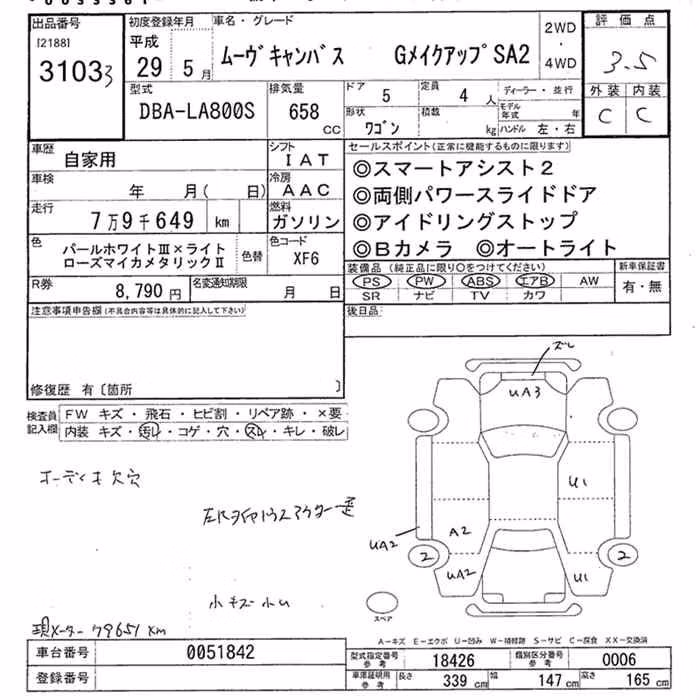 出品番号 初度登録年月 車名・グレード 2WD 評価点
[2188] 平成 ムーヴキャンバス GメイクアップSA2 ・ 3.5
3103 29年 5月 4WD
外装 内装
型式 排気量 ドア 5 定員 4人 ディーラー・並行 C C
DBA-LA800S 658cc 形状 ワゴン 積載 kg モデル年式 年
ハンドル 左・右
車歴 自家用 シフト IAT セールスポイント(正常に機能するものに限ります)
車検 年 月( 日) 冷房 AAC ◎スマートアシスト2
走行 7万9千649 km 燃料 ガソリン ◎両側パワースライドドア
◎アイドリングストップ
色 パールホワイトⅢ×ライト 色替 色コード XF6 ◎Bカメラ ◎オートライト
ローズマイカメタリックⅡ
装備品(純正品に限り○をつけてください) 新車保証書
R券 8,790円 名変通知期限 月 日 PS PW ABS エアB AW 有・無
SR ナビ TV カワ
注意事項申告欄(不具合内容等は具体的に記入して下さい) 後日品
修復歴 有〔箇所 〕
検査員 FW キズ・飛石・ヒビ割・リペア跡・×要
記入欄 内装 キズ・汚レ・コゲ・穴・スレ・キレ・破レ
ズレ
UA3
オーディオ欠穴
U1
A2
UA2
2 2
UA2 U1
小キズ小U
スペア
現メーター79651km
A-キズ E-エクボ U-凹み W-補修跡 S-サビ C-腐食 XX-交換済
車台番号 0051842 型式指定番号 参考 18426 類別区分番号 参考 0006
登録番号 車庫証明用 参考 長さ 339cm 幅 147cm 高さ 165cm